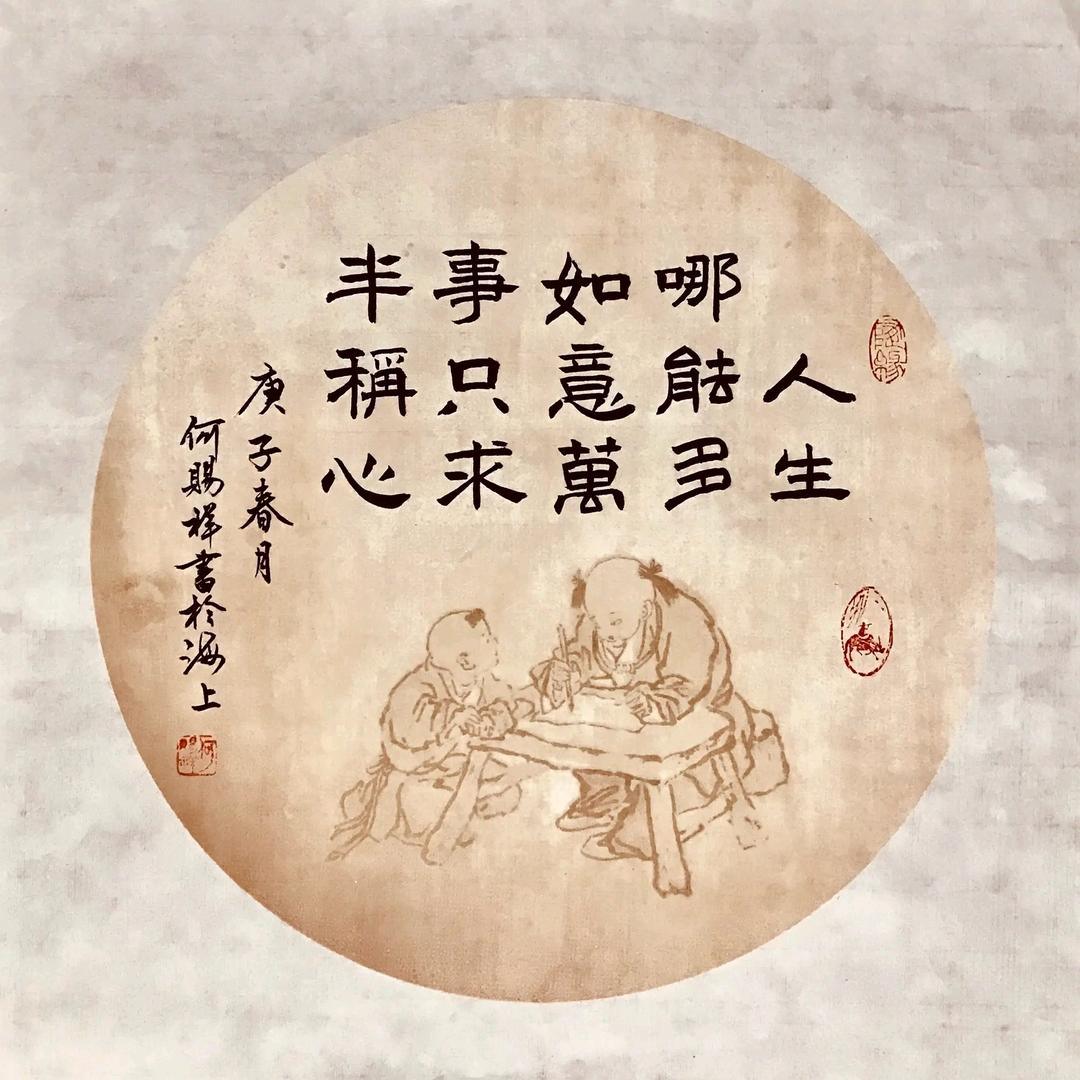 人生
哪能多
如意萬
事只求
半稱心
庚子春月
何賜祥書於海上